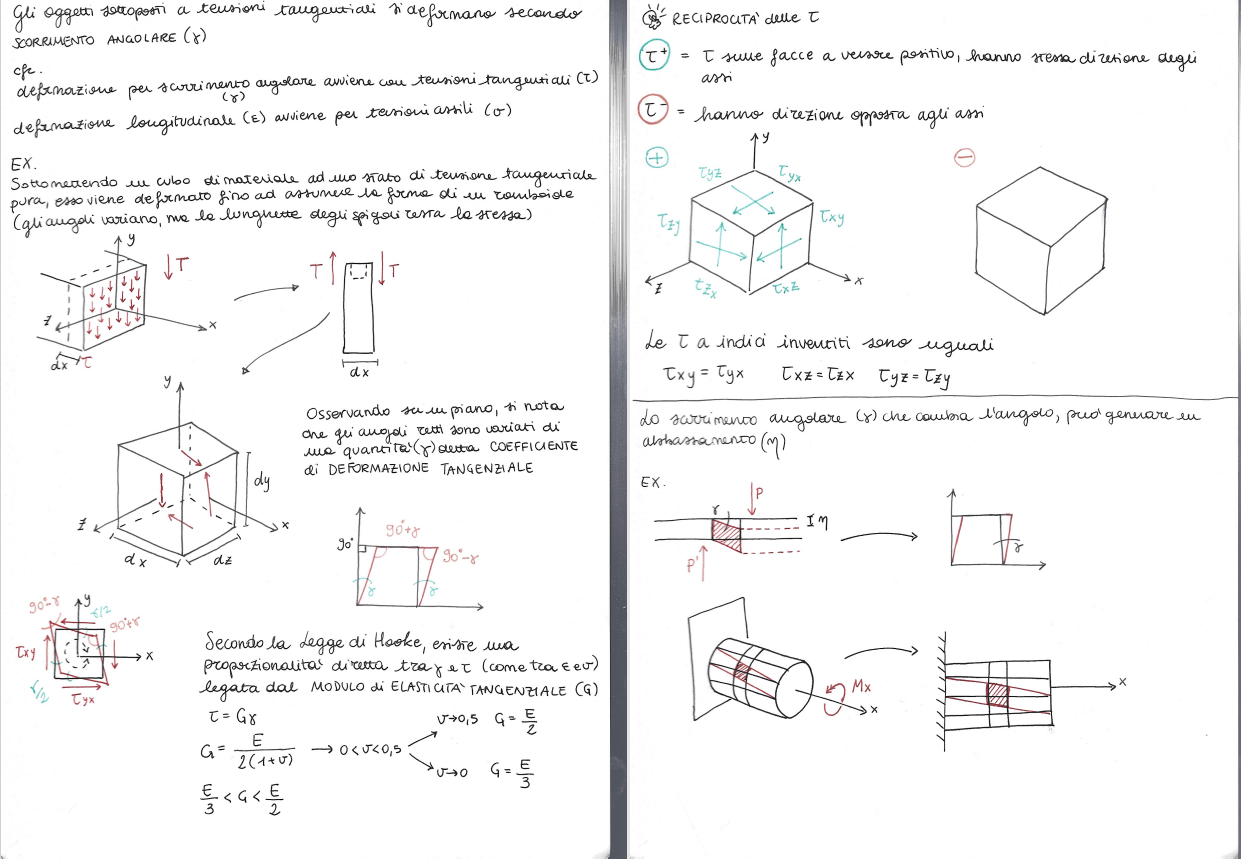 Gli oggetti sottoposti a tensioni tangentiali si deformano secondo
SCORRIMENTO ANGOLARE (γ)
cfr.
deformazione per scorrimento angolare avviene con tensioni tangentiali (τ)
(γ)
deformazione longitudinale (ε) avviene per tensioni assili (σ)
EX.
Sottomettendo un cubo di materiale ad uno stato di tensione tangentiale
pura, esso viene deformato fino ad assumere la forma di un romboide
(gli angoli variano, ma la lunghette degli spigoli resta la stessa)
y
T
z
x
dx
τ
T
T
dx
y
dy
z
x
dx
dz
Osservando su un piano, si nota
che gli angoli retti sono variati di
una quantità (γ) detta COEFFICIENTE
di DEFORMAZIONE TANGENZIALE
90°
90°+γ
90°-γ
γ
γ
90°-γ
y
γ/2
90°+γ
τxy
x
γ/2
τyx
Secondo la Legge di Hooke, esiste una
proporzionalità diretta tra γ e τ (come tra ε e σ)
legata dal MODULO di ELASTICITÀ TANGENZIALE (G)
τ = Gγ
G = E / 2(1+υ) → 0<υ<0,5
υ→0,5 G = E/2
υ→0 G = E/3
E/3 < G < E/2
RECIPROCITÀ delle τ
τ⁺ = τ sulle facce a versore positivo, hanno stessa direzione degli
assi
τ⁻ = hanno direzione opposta agli assi
+
−
y
τyz
τyx
τzy
τxy
z
τzx
τxz
x
Le τ a indici invertiti sono uguali
τxy = τyx τxz = τzx τyz = τzy
Lo scorrimento angolare (γ) che cambia l'angolo, può gennare un
abbassamento (η)
EX.
P
γ
η
P'
γ
Mx
x
x